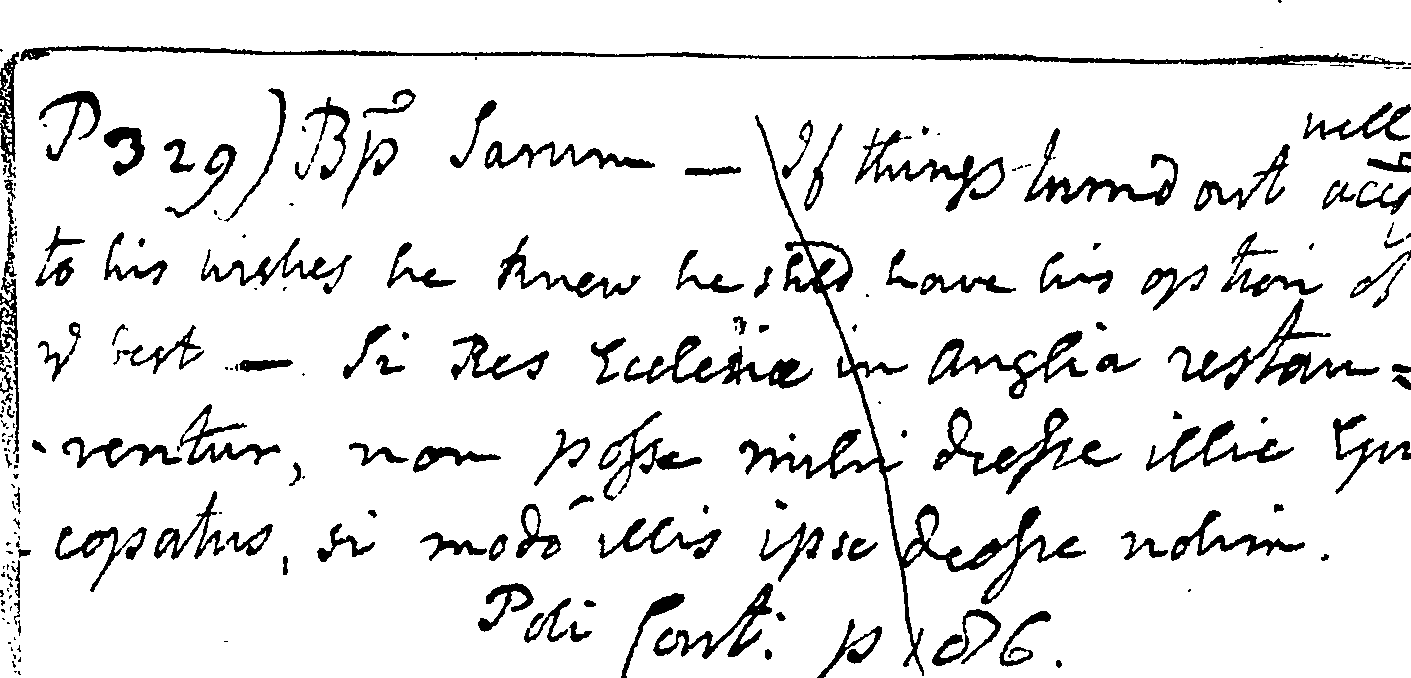 P 329) Bp Sarum — If things turnd out well
to his wishes he knew he shd have his option of
ye best — Si Res Ecclesiæ in Anglia restau=
-rentur, non posse mihi deesse illic Epis
-copatus, si modò illis ipse deesse nolim.
Poli Conti. p 186.